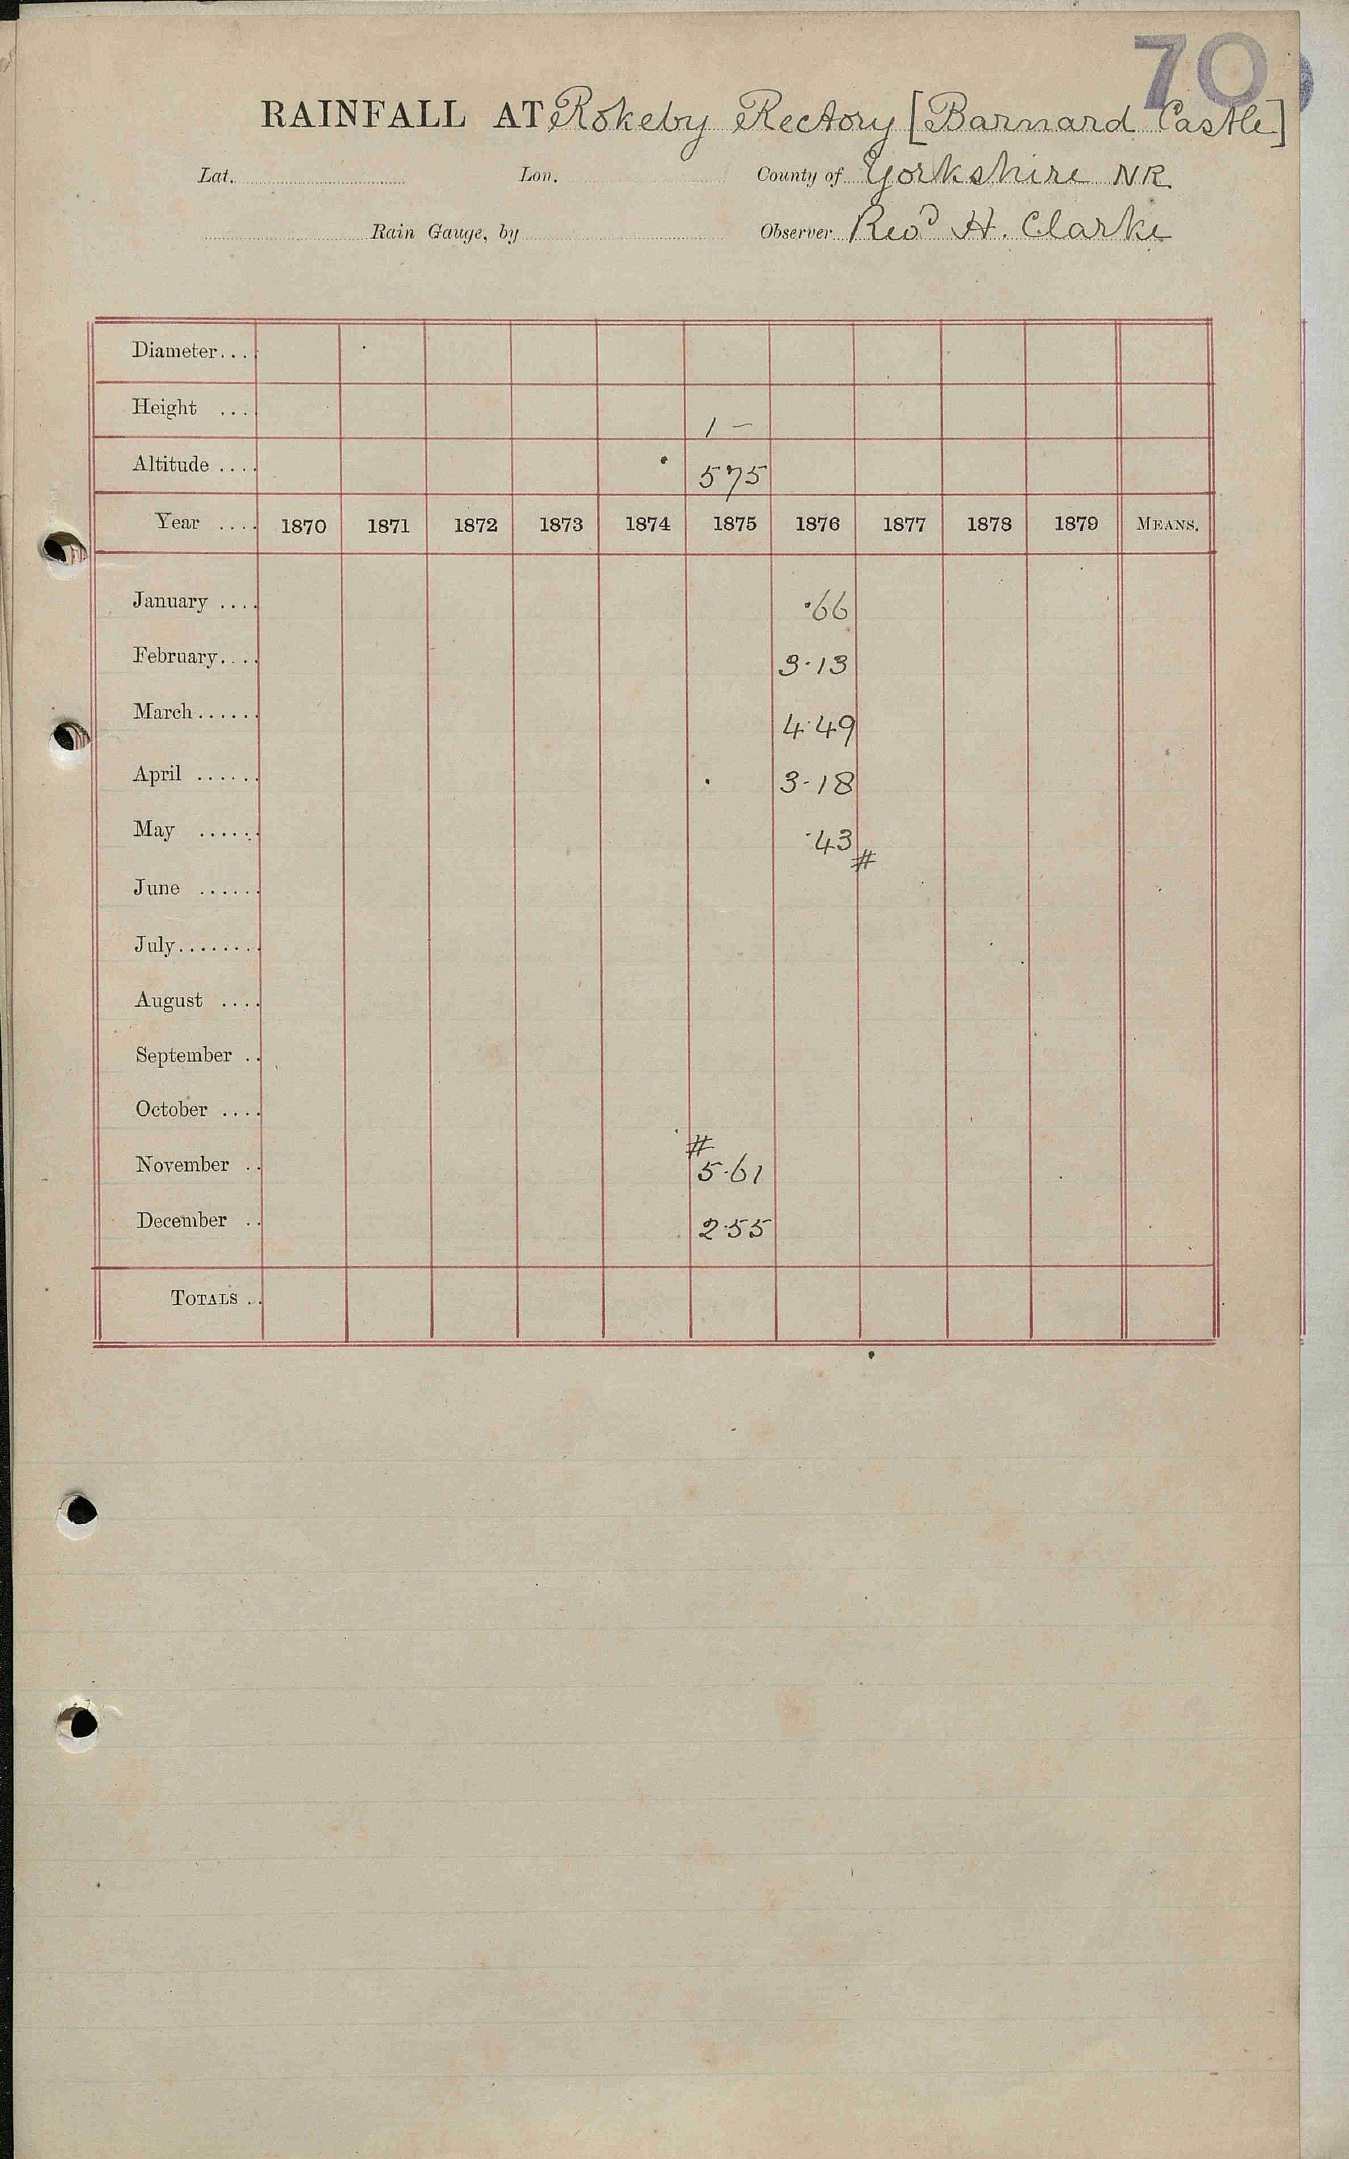 70
RAINFALL AT Rokeby Rectory [Barnard Castle]
Lat. Lon. County of Yorkshire NR
Rain Gauge, by Observer Revd H. Clarke
Diameter...
Height ... 1 –
Altitude .... 575
Year .... 1870 1871 1872 1873 1874 1875 1876 1877 1878 1879 MEANS.
January .... ·66
February.... 3·13
March...... 4·49
April ...... 3·18
May ...... ·43 #
June ......
July........
August ....
September ..
October ....
#
November .. 5·61
December .. 2·55
TOTALS ..